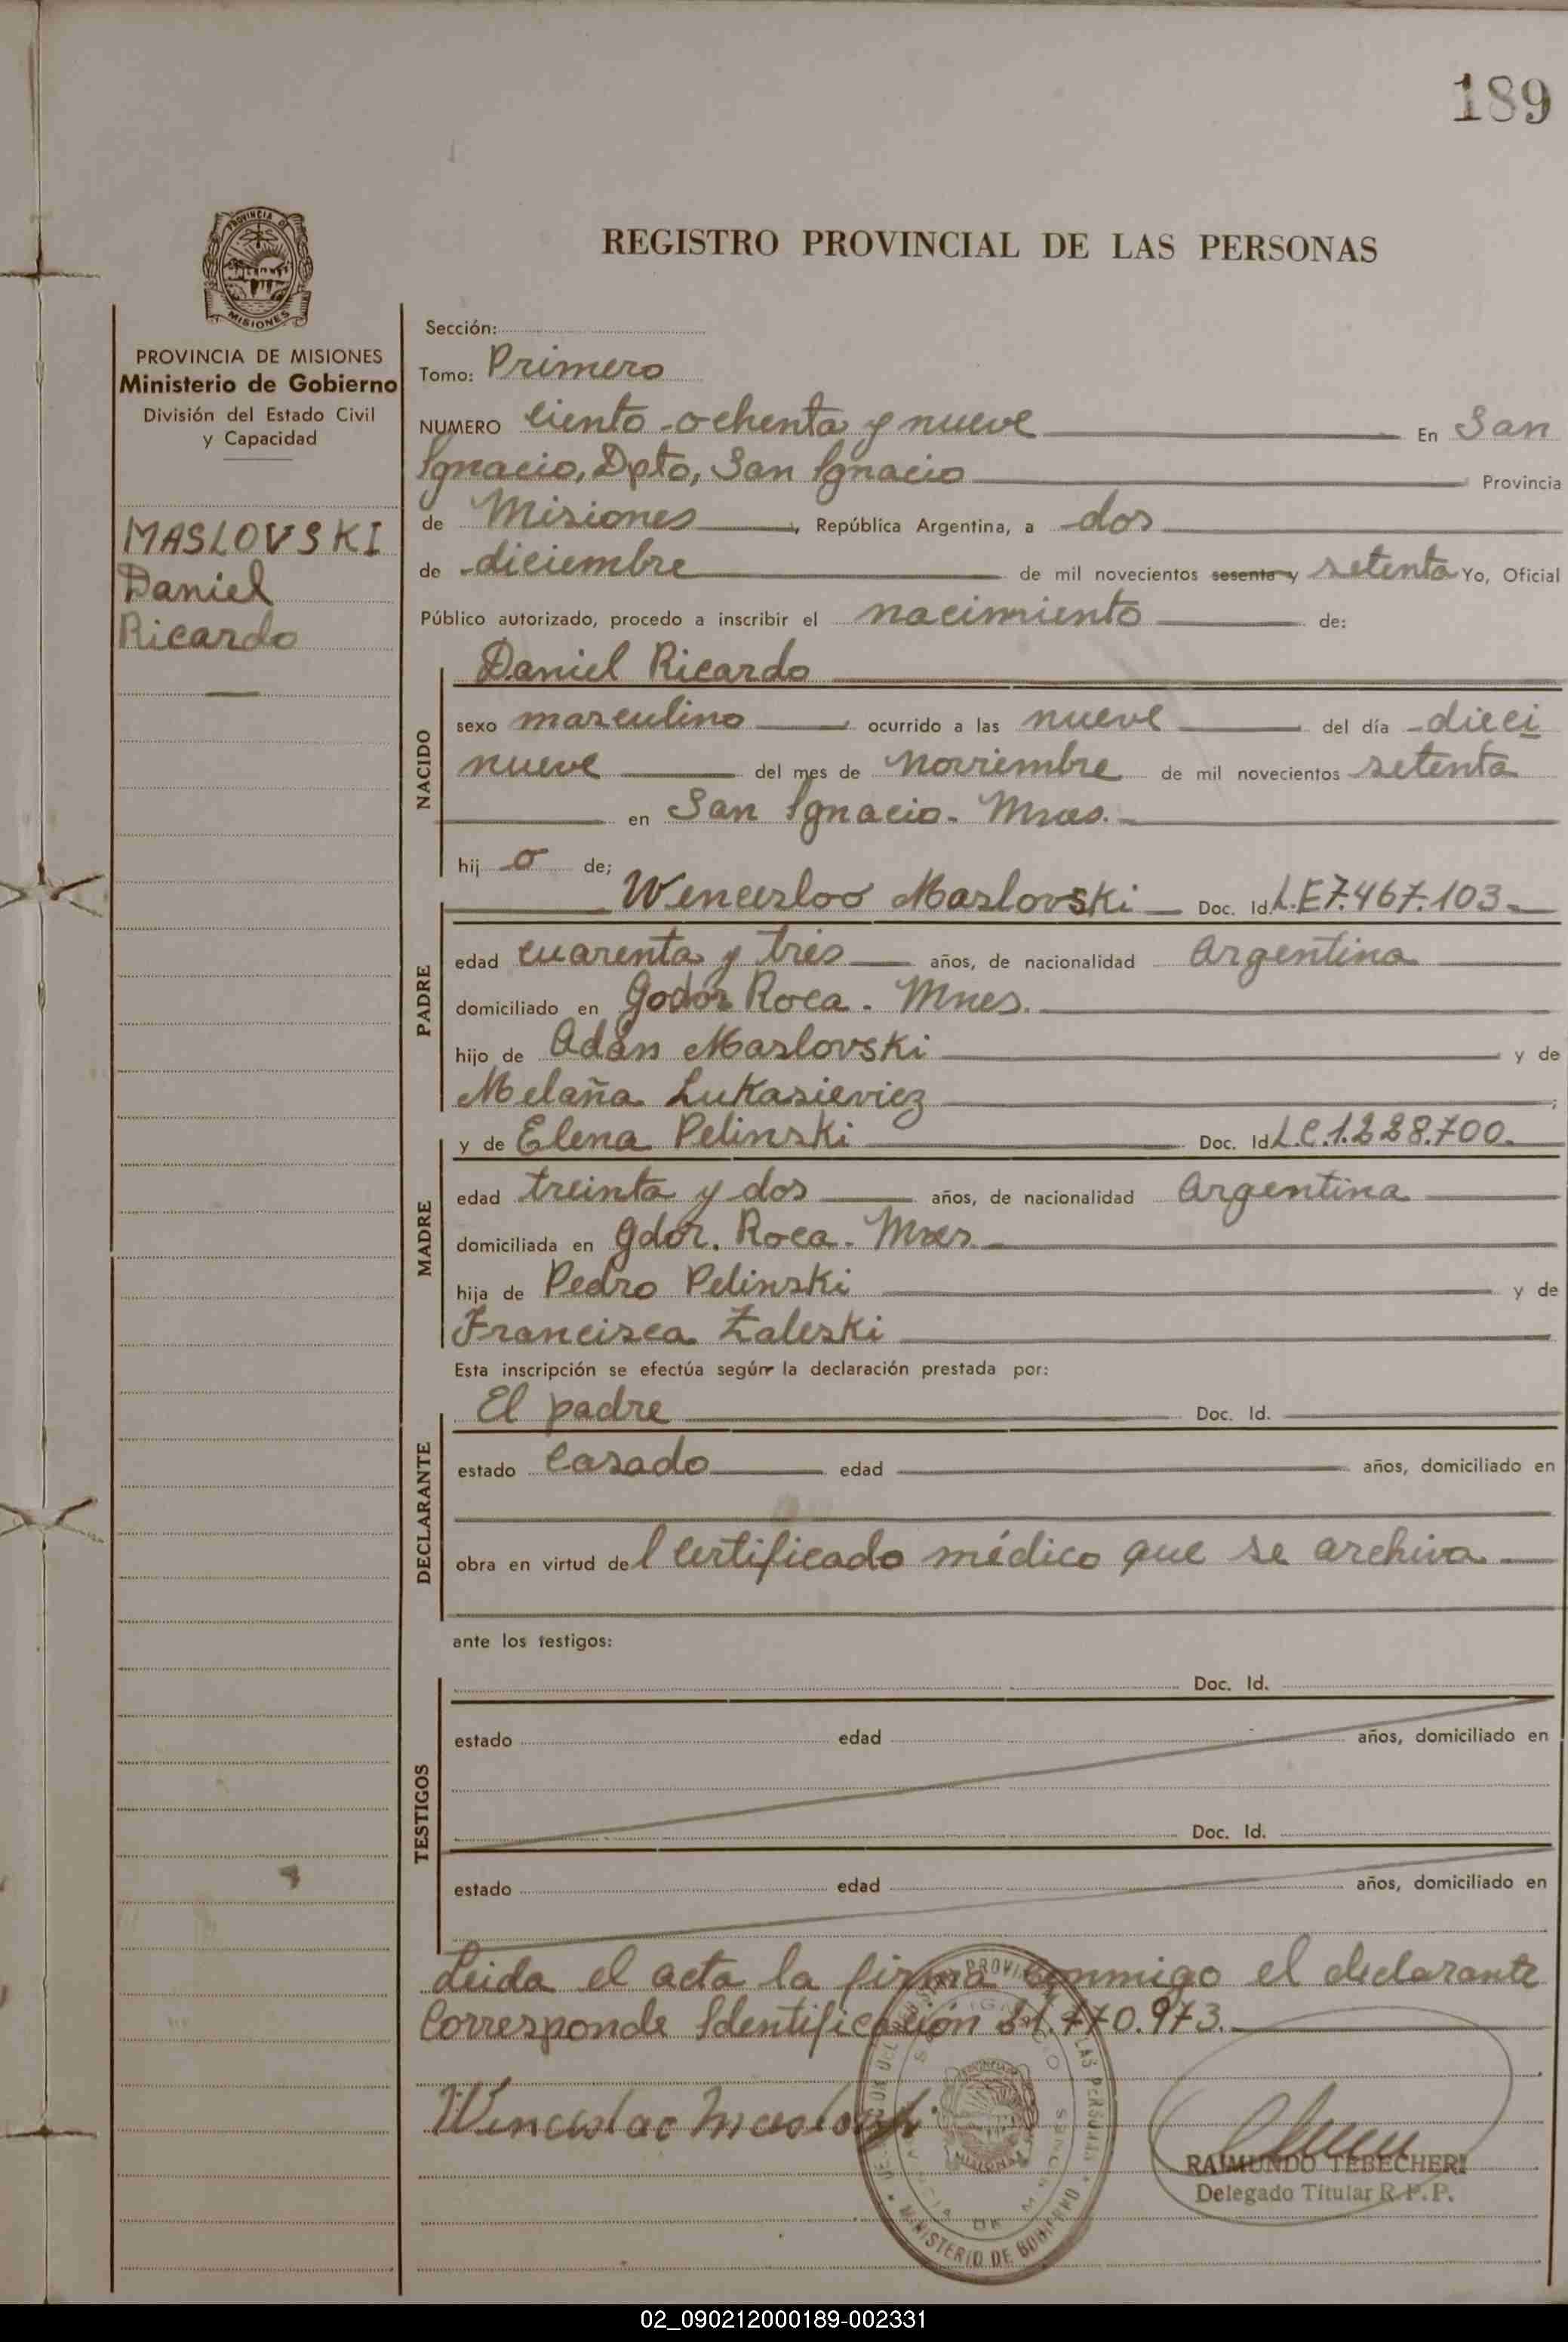 189
PROVINCIA DE
MISIONES
PROVINCIA DE MISIONES
Ministerio de Gobierno
División del Estado Civil
y Capacidad
MASLOVSKI
Daniel
Ricardo
REGISTRO PROVINCIAL DE LAS PERSONAS
Sección:
Tomo: Primero
NUMERO Ciento ochenta y nueve En San
Ignacio, Dpto, San Ignacio Provincia
de Misiones, República Argentina, a dos
de diciembre de mil novecientos sesenta y setenta Yo, Oficial
Público autorizado, procedo a inscribir el nacimiento de:
NACIDO
Daniel Ricardo
sexo masculino ocurrido a las nueve del día dieci
nueve del mes de noviembre de mil novecientos setenta
en San Ignacio. Mnes.
hij o de;
PADRE
Wenceslao Maslovski Doc. Id. L.E 7.467.103
edad cuarenta y tres años, de nacionalidad Argentina
domiciliado en Godor Roca. Mnes.
hijo de Adán Maslovski y de
Melaña Lukasieviez
MADRE
y de Elena Pelinski Doc. Id L.C.1.228.700.
edad treinta y dos años, de nacionalidad Argentina
domiciliada en Gdor. Roca. Mnes.
hija de Pedro Pelinski y de
Francisca Zaleski
Esta inscripción se efectúa según la declaración prestada por:
DECLARANTE
El padre Doc. Id.
estado Casado edad años, domiciliado en
obra en virtud del Certificado médico que se archiva
ante los testigos:
TESTIGOS
Doc. Id.
estado edad años, domiciliado en
Doc. Id.
estado edad años, domiciliado en
Leida el acta la firma conmigo el declarante
Corresponde Identificación 21.770.973.
Wenceslao Maslovski
RAIMUNDO TEBECHERI
Delegado Titular R.P.P.
MINISTERIO DE GOBIERNO
02_090212000189-002331